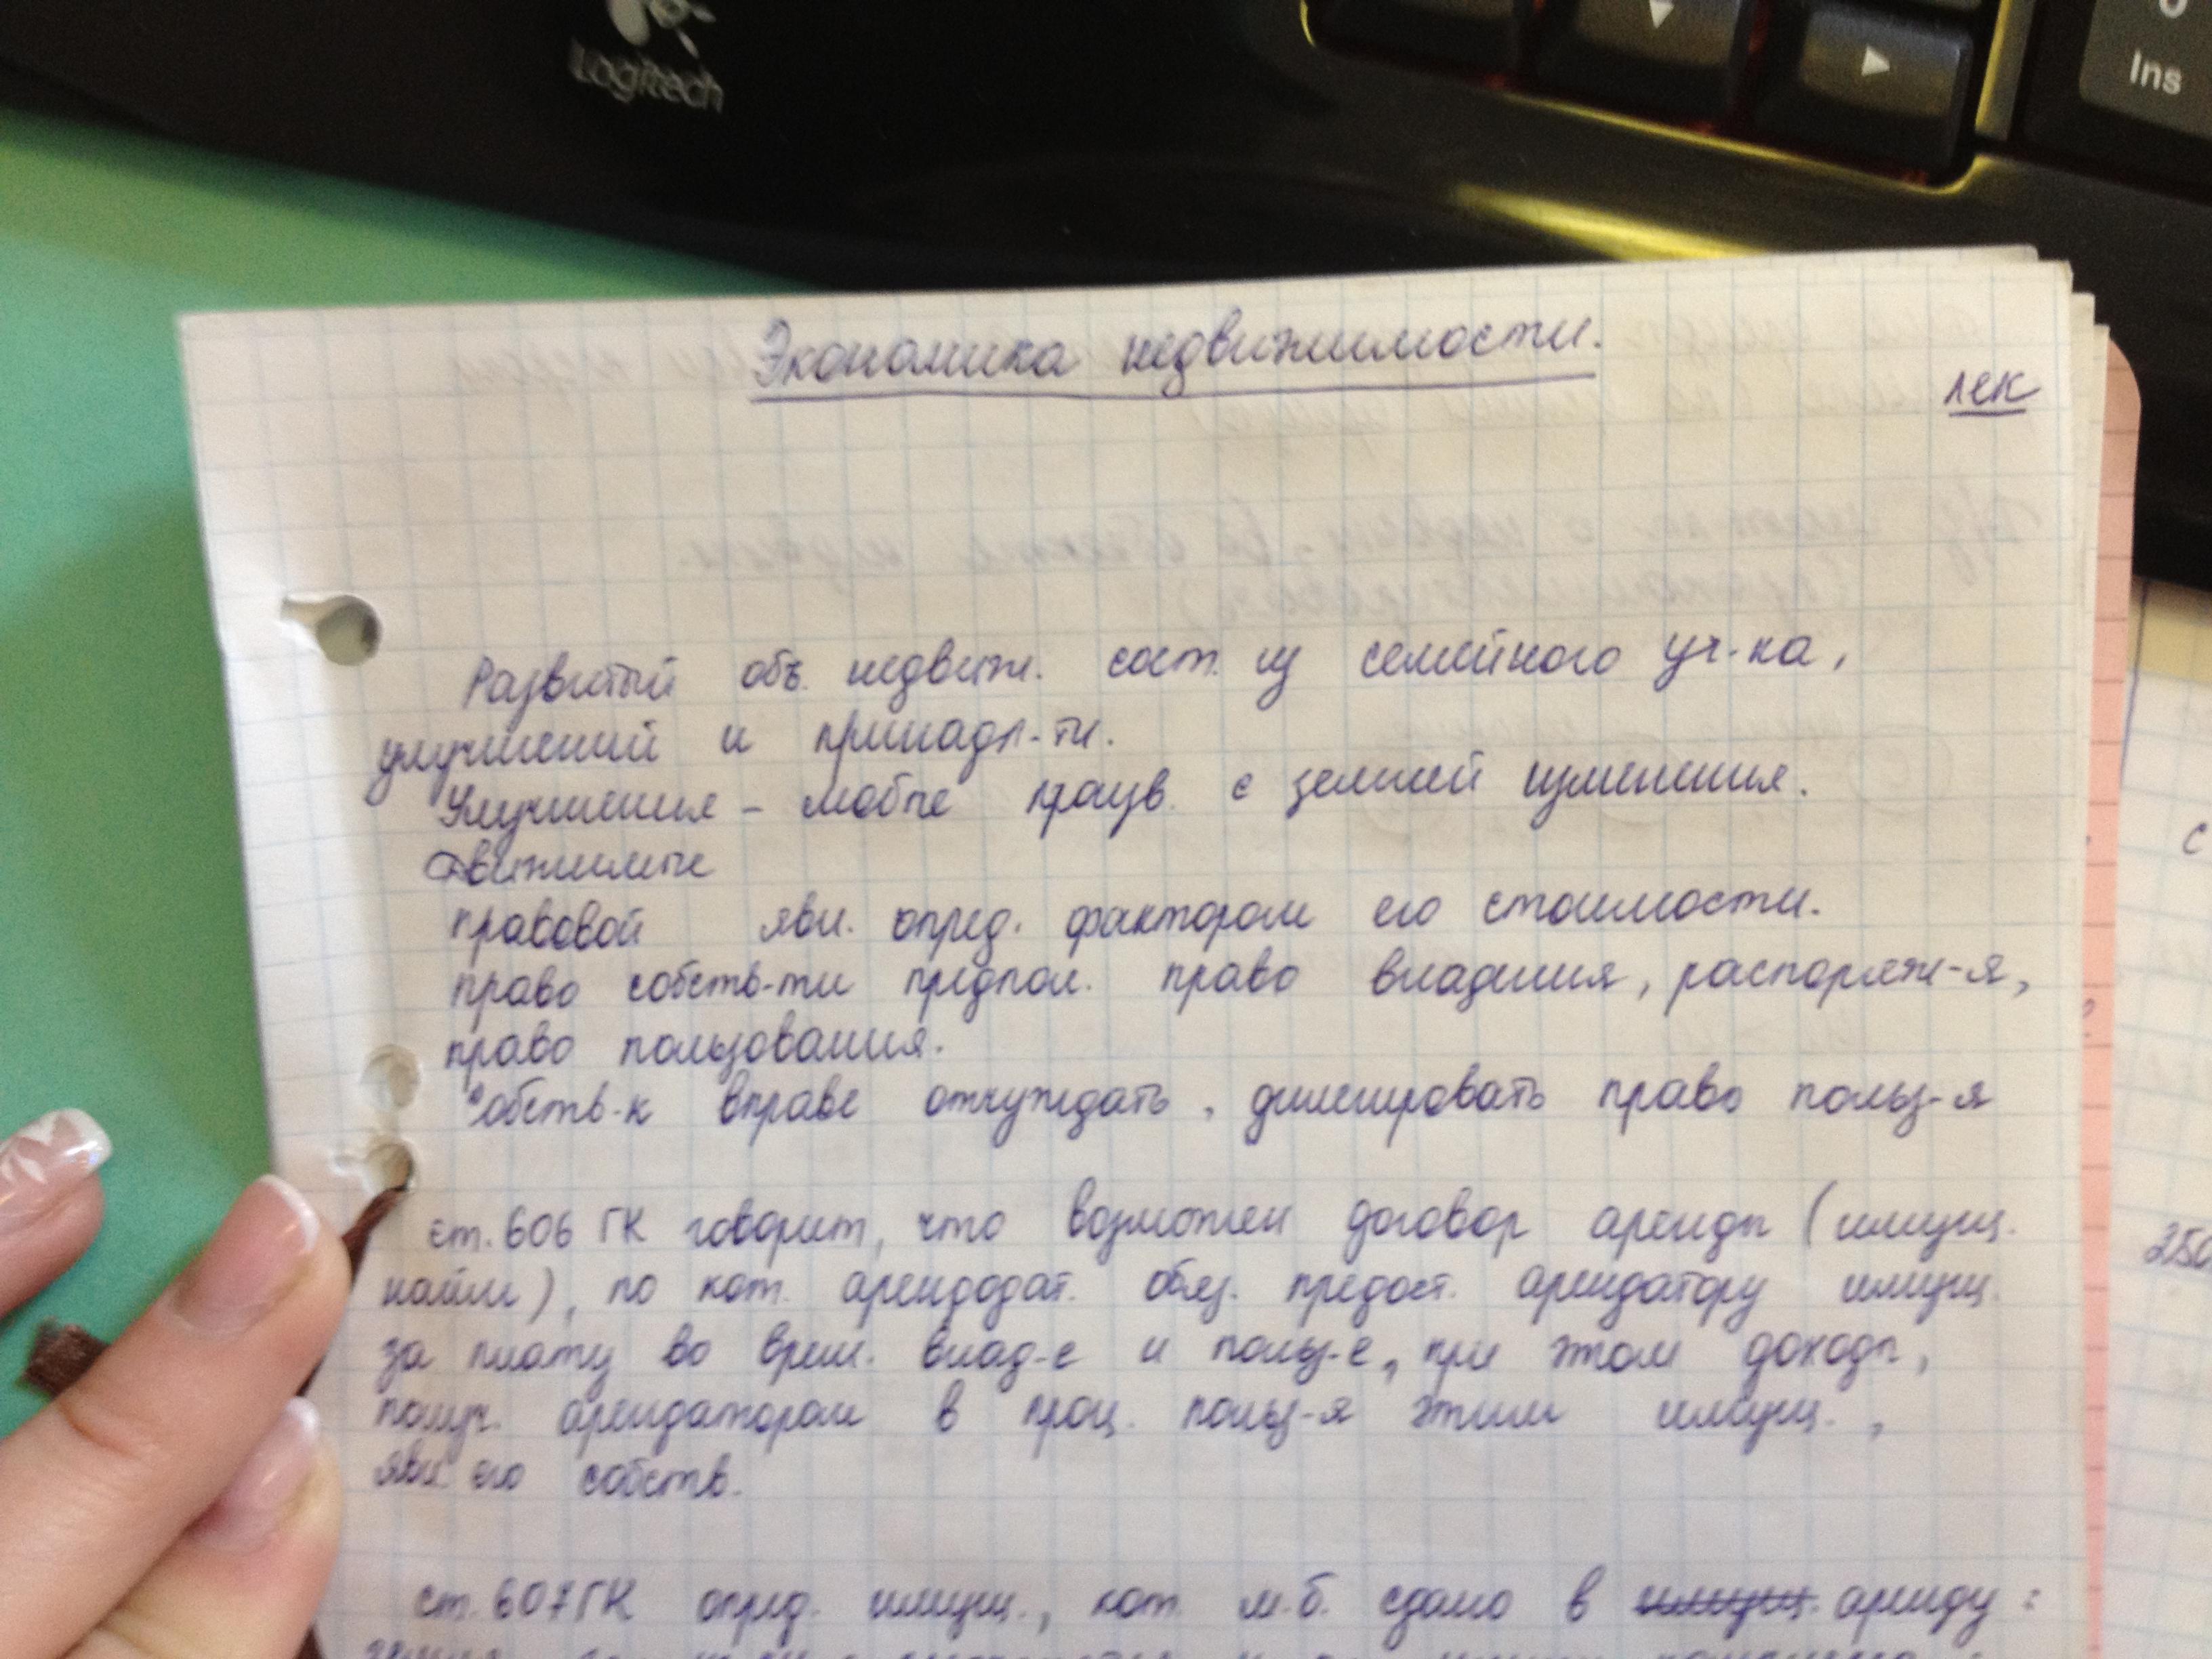 Logitech
Ins
Экономика недвижимости.
лек
Развитый объ. недвиж. сост. из семейного уч-ка,
улучшений и принадл-ти.
Улучшения – любые произв. с землей изменения.
движимые
правовой явл. опред. фактором его стоимости.
право собств-ти предпол. право владения, распоряж-я,
право пользования.
Собств-к вправе отчуждать, делегировать право польз-я
ст. 606 ГК говорит, что возможен договор аренды (имущ.
найм), по кот. арендодат. обяз. предост. арендатору имущ.
за плату во врем. влад-е и польз-е, при этом доходы,
получ. арендатором в проц. польз-я этим имущ.,
явл. его собств.
ст. 607 ГК опред. имущ., кот. м.б. сдано в имущ. аренду: